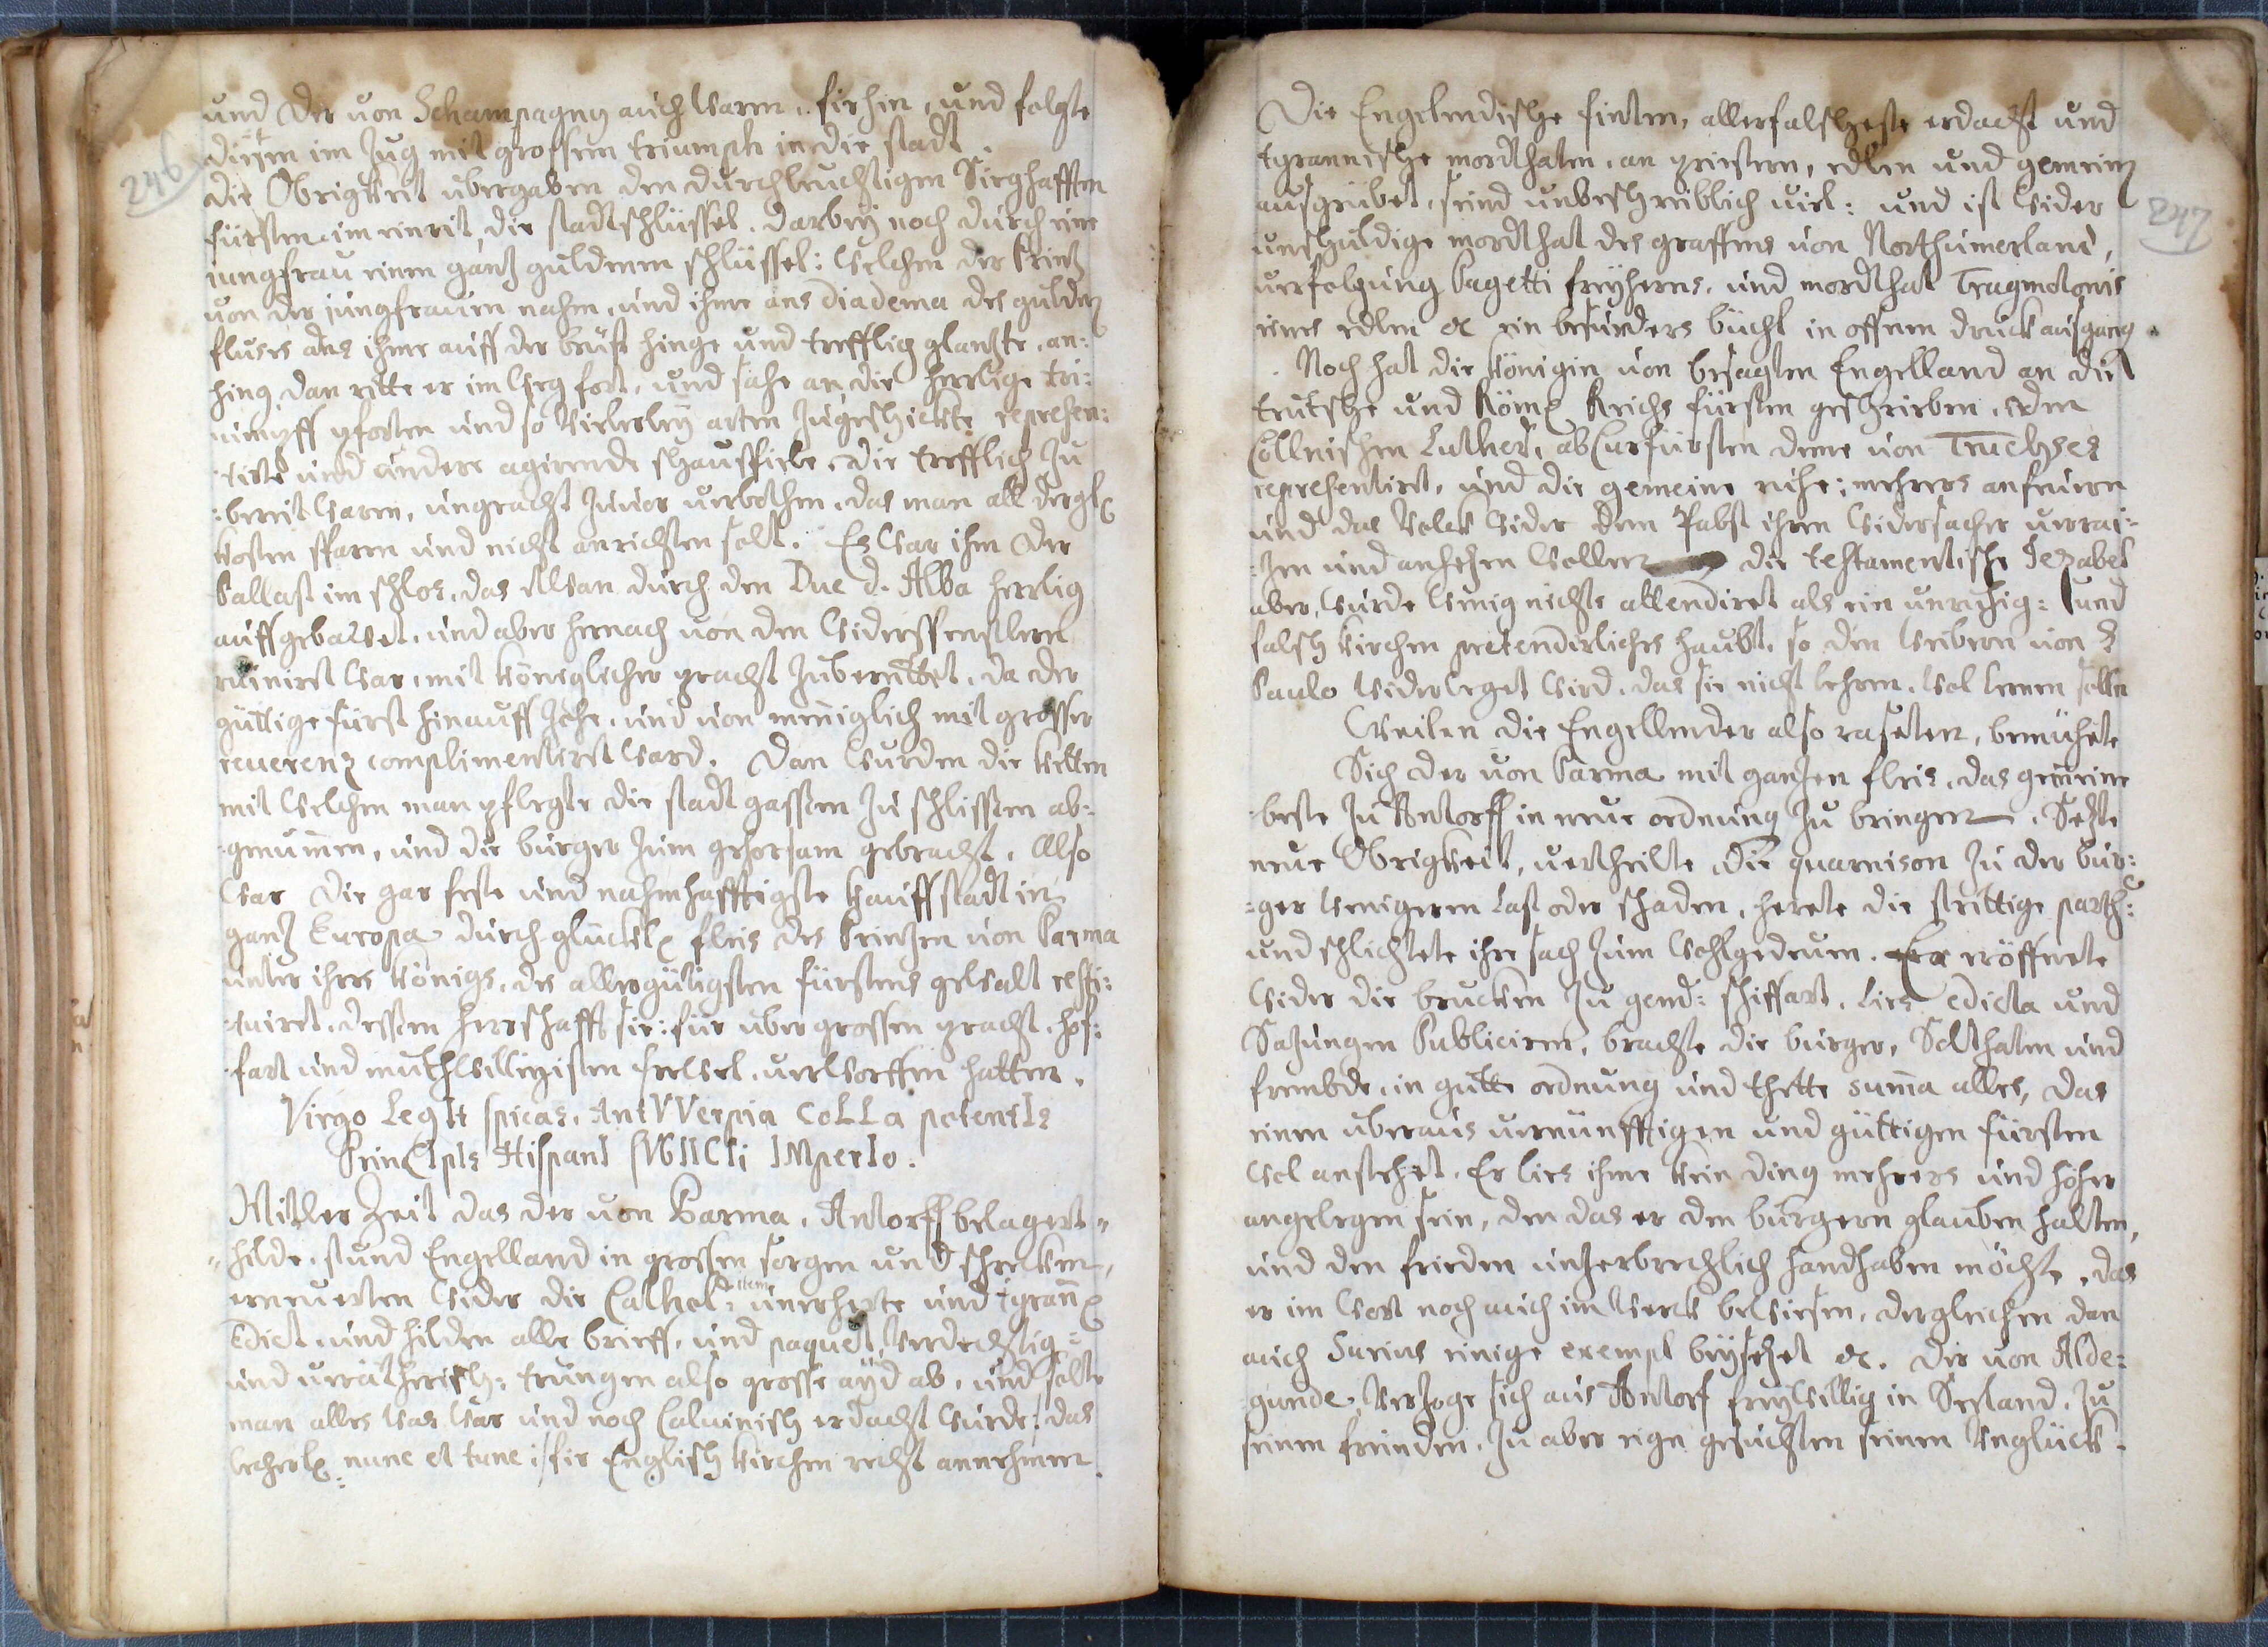 246
und der von Schampagny auch waren, fierhin, und folgte
diesem im zug mit grossem triumph in die stadt.
die Obrigkeit übergaben den durchleuchtigen Sieghafften
fürsten im einrit, die stadtschlüssel. darbey noch durch eine
iungfrau einen gantz guldenen schlüssel: welchen der Printz
von der iungfrauen nahm, und ihme ans diadema des gulden
fluses als ihme auff der brüst hinge und trefflich glantzte, an=
hing, dan ritte er im weg fort, und sahe an, die herrlige tri=
umpff pforten und so vielerley arten zugeschickte represen=
tirte und andere agirende schauspiele, die trefflich zu
=bereit waren, ungeacht zuvor verbothen, das man all dergl
kosten sparen und nicht anrichten solt. Es war ihm der
Pallast im schlos, das etwan durch den Duc d. Alba herrlig
auffgebauet, und aber hernach von den widerspenstlern
ruinirt war, mit königlicher pracht zubereittet, da der
güttige fürst hinauff zohe, und von meniglich mit grosser
reuerenz complimentiret ward. Dan wurden die ketten
mit welchen man pflegte die stadt gassen zu schlissen ab=
genummen, und die burger zum gehorsam gebracht. Also
war die gar feste und nahmhafftigste kauffstadt in
gantz Europa durch glückl fleis des Printzen von Parma
unter ihres königs, des allergütigsten fürstens gewalt resti=
tuiret, dessen herrschafft sie für übergrossen pracht, hof=
fart und muthwilligisten frevel, verworffen hatten.
Virgo LegIt spicas, AntVVerpia CoLLa potentIs
PrinCIpIs HispanI sVbIICIt IMperIo.
Mitler Zeit das der von Parma, Antorff belagert=
=hilde, stund Engelland in grossen sorgen und schrecken,
erneuerten wider die Cathol= item unerherte und tyrann
Edict, und hilden alle brieff, und paquet, verdechtig=
und verätherisch: trungen also grosse ayd ab, und solte
man alles was war und noch Calvinisch erdacht wurde: das
lecherl nunc et tunc für Englisch kirchen recht annehmen.
247
Die Engelendische finten, allerfalscheste erdacht und
tyrannische mordthaten, an priestern, edlen und gemein
ausgeübet, seind unbeschreiblich viel: und ist wider
unschuldige mordthat des graffens von Northumerland,
verfolgung Pagetti freyherns, und mordthat Tragmotonis
eines edlen &c ein besunders büchl in offnem druck ausgang.
Noch hat die königin von besagten Engelland an die
teutsche und Röm Reichs fürsten geschrieben, den
Cöllnischen Luther, ab Curfürsten deme von Truchses
representirt, und die gemeine ruhe: mehrers anfeuren
und das Volck wider dem Pabst ihren widersacher verrai=
=zen und anhezen wollen die testamentische Jezabel
aber, wurde wenig nichts attendiret als ein unruhig= und
falsch kirchen pretenderliches haubt, so den weibern von S
Paulo widerleget wird, das sie nicht lehren, wol lernen sollen
Weilen die Engellender also raseten, bemühete
Sich der von Parma mit ganzen fleis, das gemeine
beste zu Antorff in neue ordnung zu bringen. Sezte
neue Obrigkeit, vertheilte die quarnison zu der bur=
=ger wenigern last oder schaden, herete die strittige parth=
und schlichtete ihre sach zum wohlgedeuen. Er eröffnete
wider die brucken zu gend: schiffart, lies edicta und
Sazungen Publiciren, brachte die burger, Soldaten und
frembde, in gutte ordnung und thette suma alles, das
einen überaus vernünfftigen und güttigen fürsten
wol anstehet. Er lies ihme kein ding mehrers und höher
angelegen sein, den das er den bürgern glauben halten,
und den frieden unzerbrechlich handhaben möchte, das
er im wort noch auch im werck bewiesen, dergleichen dan
auch Surius einige exempl beysezet &c. Der von Alde=
gunde, verzoge sich aus Antorf freywillig in Seeland, zu
seinen freinden, zu aber eign gesuchten seinen Unglück.